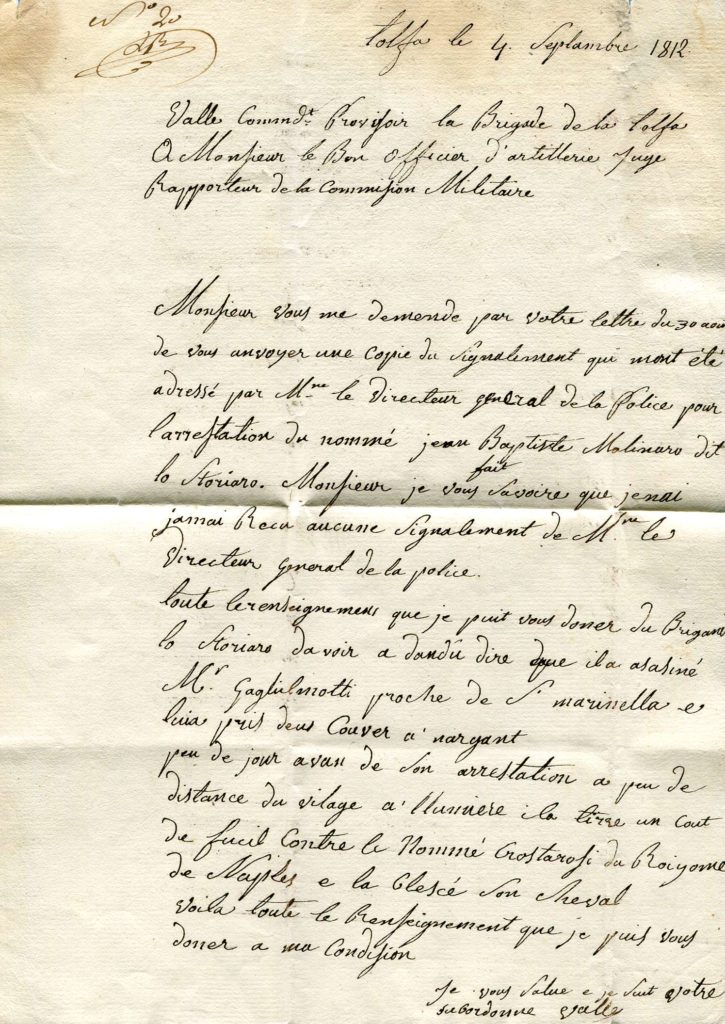 N° 20
Tolfa le 4. Septambre 1812
Valle Commdt Provisoir la Brigade de la Tolfa
A Monsieur le Bon officier d'artillerie Juge
Rapporteur de la Commission Militaire
Monsieur vous me demende par votre lettre du 30 aout
de vous anvoyer une Copie du Signalement qui mont été
adressé par Mr. le Directeur general de la Police pour
larrestation du nommé jean Baptiste Molinaro dit
lo Storiaro. Monsieur je vous fait Savoire que jenai
jamai Recu aucune Signalement de Mr. le
Directeur general de la police.
toute lerenseignemens que je puit vous doner du Brigant
lo Storiaro davoir a dandû dire que ila asasiné
Mr. Gagliulmotti proche de St marinella e
luia pris deus Couver a' nargant
peu de jour avan de Son arrestation a peu de
distance du vilage a' llumiere ila tirre un Cout
de fucil Contre le Nommé Crostarosi du Roiyome
de Naples e la blescé Son Cheval
Voila toute le Renseignement que je puis vous
doner a ma Condision
Je vous Salue e je Suit votre
subordonne Valle